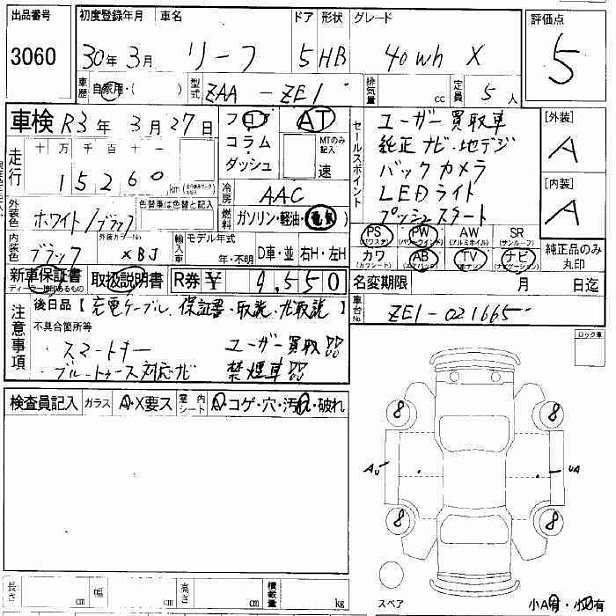 出品番号 初度登録年月 車名 ドア 形状 グレード 評価点
3060 30年 3月 リーフ 5 HB 40wh X 5
車歴 自家用・( ) 型式 ZAA - ZE1 排気量 cc 定員 5人
車検 R3年 3月 27日 フロア AT
コラム・ダッシュ MTのみ記入 速
セールスポイント
ユーザー買取車
純正ナビ・地デジ
バックカメラ
LEDライト
プッシュスタート
[外装]
A
[内装]
A
走行 十 万 千 百 十 一
15260 km
冷房 AAC
外装色 ホワイト/ブラック 色替車は色替と記入 燃料 ガソリン・軽油・電気
外装カラーNo XBJ
内装色 ブラック 輸入車 モデル年式 年・不明 D車・並 右H・左H
PS (パワステ) PW (パワーウインド) AW (アルミホイル) SR (サンルーフ)
カワ (カワシート) AB (エアバック) TV (ナビテレビ) ナビ (ナビゲーション)
純正品のみ丸印
新車保証書 取扱説明書 R券 ¥ 9,550
名変期限 月 日迄
車台No ZE1-021665
注意事項
後日品【充電ケーブル、保証書・取説、ナビ取説】
不具合箇所等
・スマートキー ユーザー買取!!
・ブルートゥース対応ナビ 禁煙車!!
ロック車
検査員記入 ガラス A・X要ス 室内シート A・コゲ・穴・汚れ・破れ
8 8
A U UA
8 8
スペア
長さ cm 幅 cm 高さ cm 積載量 kg
小A有・小凹有